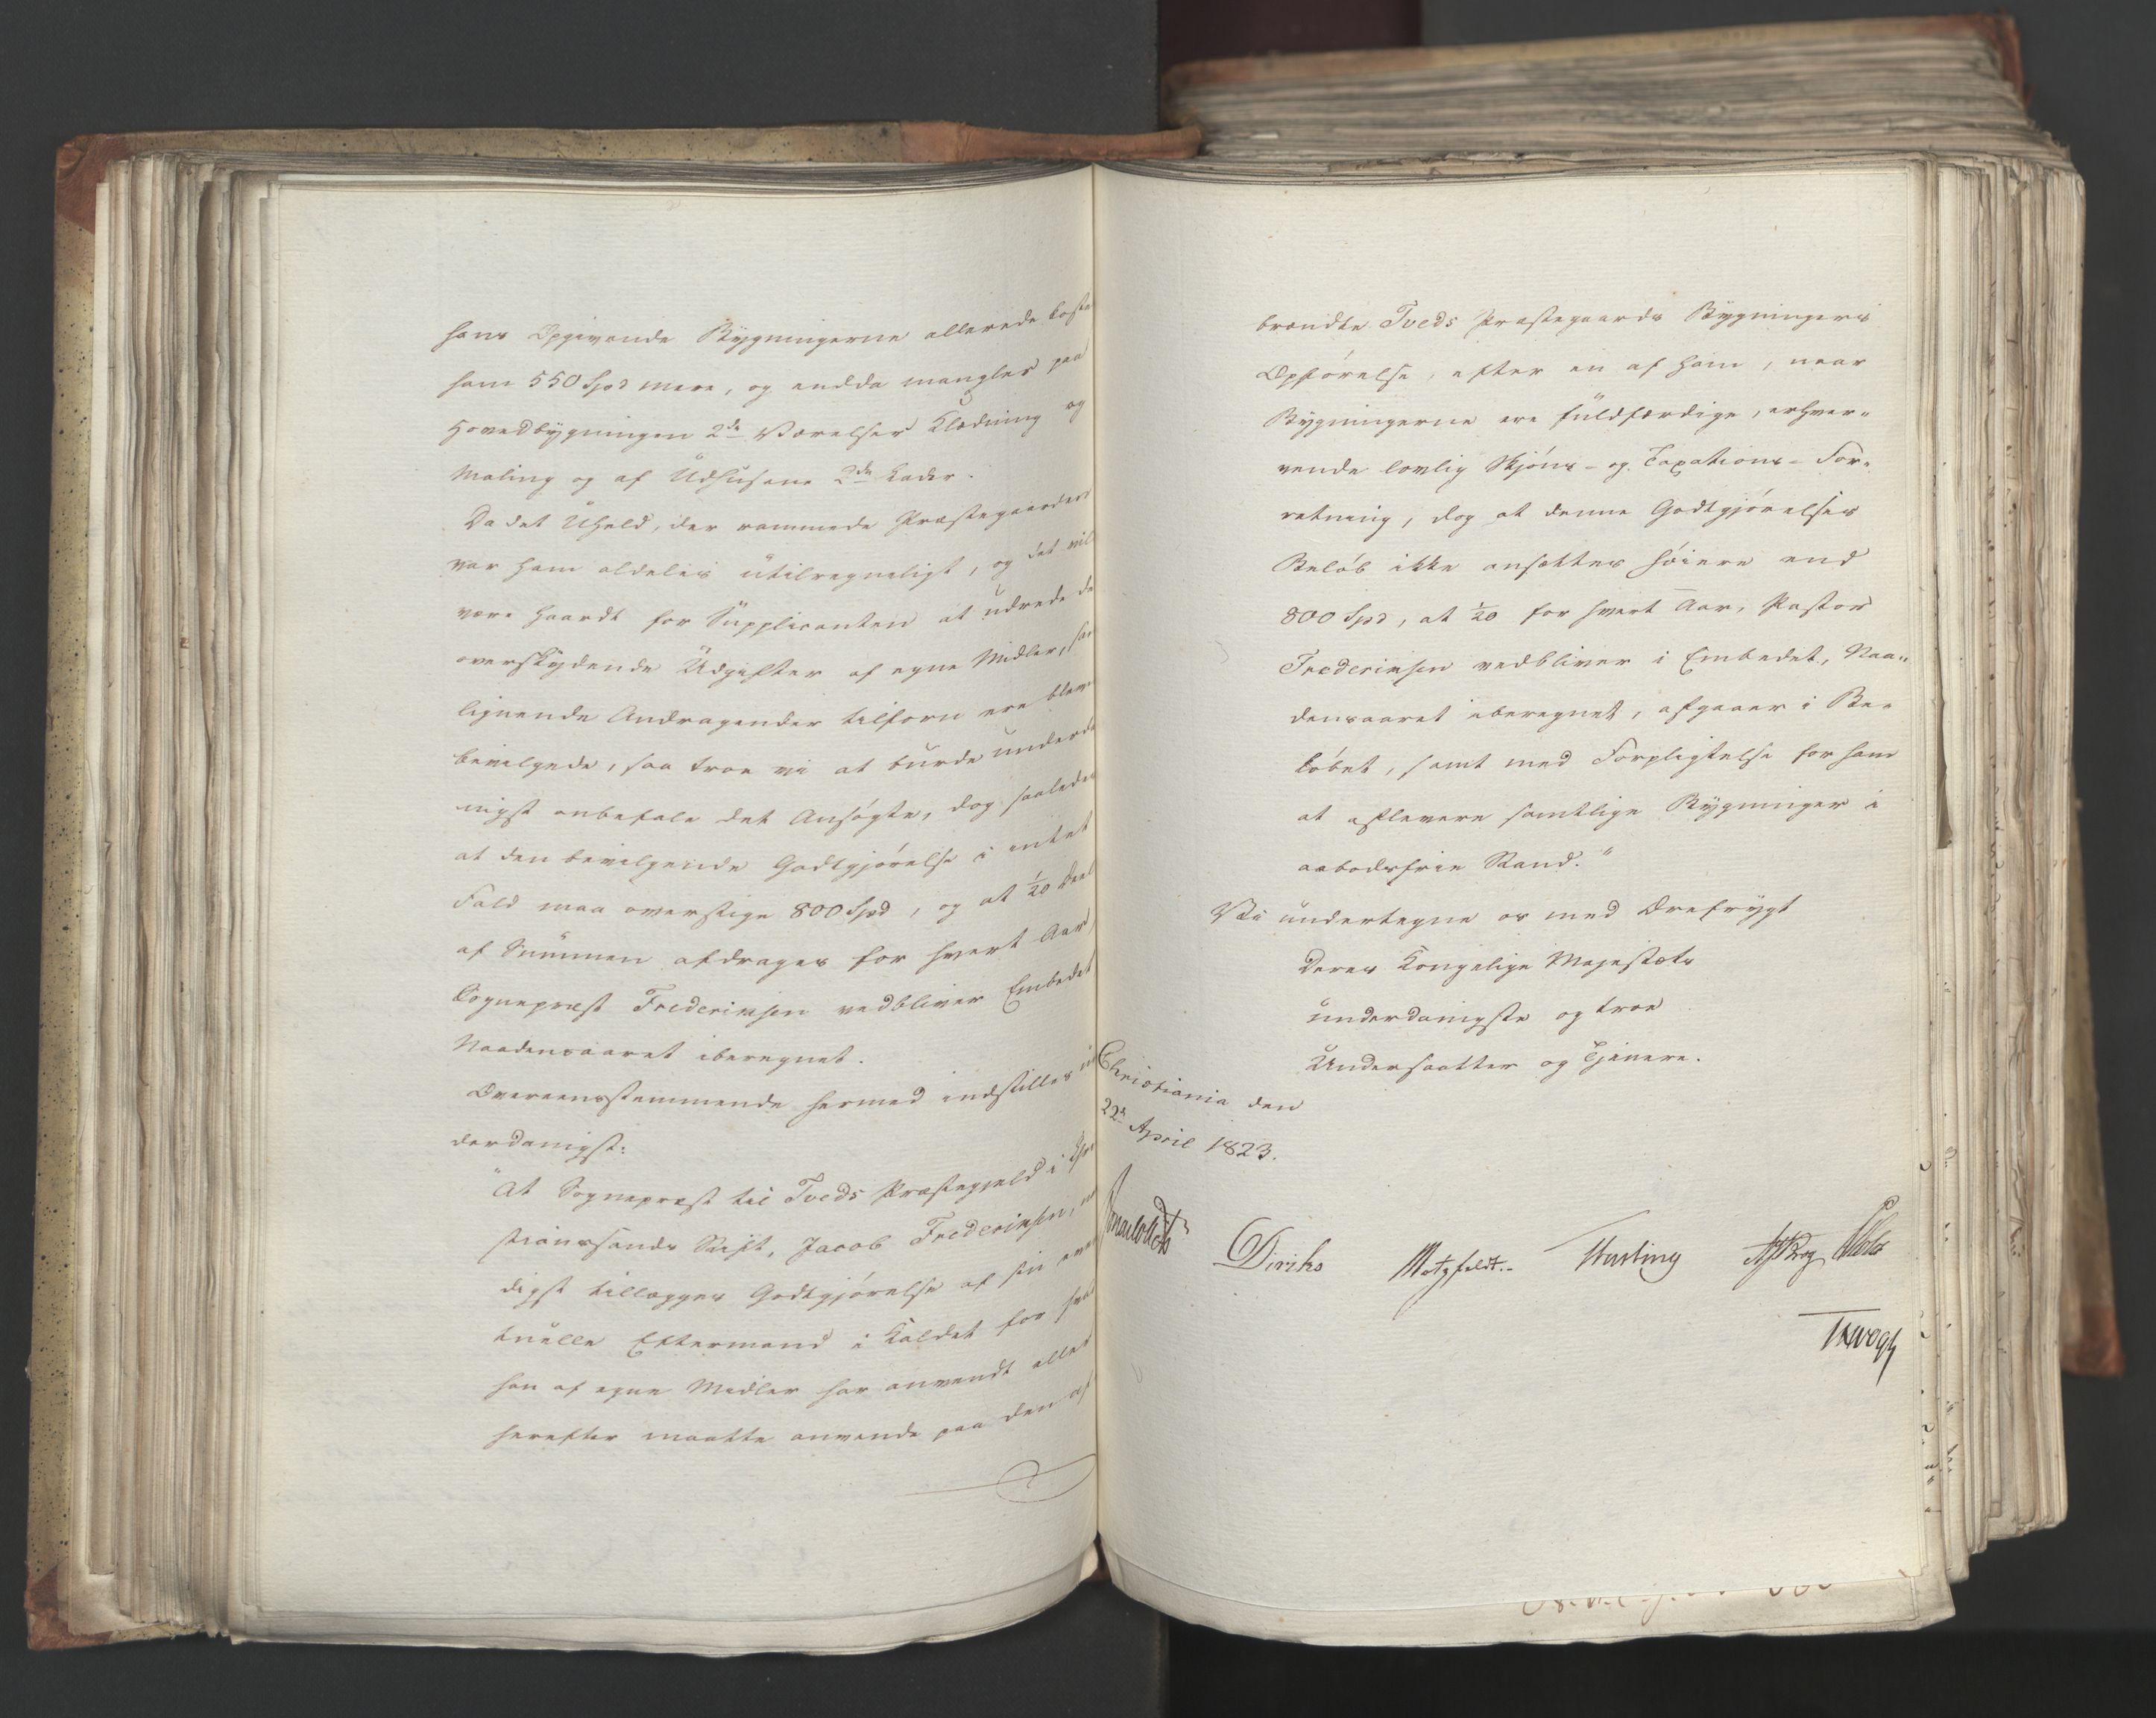 hans Opgivende Bygningerne allerede koste
ham 550 Spd mere, og endda mangler paa
Hovedbygningen 2de Værelser Klædning og
Maling og af Udhusene 2de Lader.
Da det Uheld, der rammede Præstegaarden
var ham aldeles utilregneligt, og det vil
være haardt for Supplicanten at udrede de
overskydende Udgifter af egne Midler, som
lignende Andragender tilforn ere bleve
bevilgede, saa troe vi at burde underda
nigst anbefale det Ansøgte, dog saaledes
at den bevilgende Godtgjørelse i intet
Fald maa overstige 800 Spd, og at 1/20 Deel
af Summen afdrages for hvert Aar,
Sognepræst Frederiksen vedbliver Embedet
Naadensaaret iberegnet.
Overeensstemmende hermed indstilles un
derdanigst:
"At Sognepræst til Tveds Præstegjeld i Chri
stianssands Stift, Jacob Frederiksen, naa
digst tillægges Godtgjørelse af sin even
tuelle Eftermand i Kaldet for hvad
han af egne Midler har anvendt eller
herefter maatte anvende paa den af
brændte Tveds Præstegaards Bygningers
Opførelse, efter en af ham, naar
Bygningerne ere fuldfærdige, erhver„
vende lovlig Skjøns- og Taxations-For„
retning, dog at denne Godtgjørelses
Beløb ikke ansættes høiere end
800 Spd, at 1/20 for hvert Aar, Pastor
Frederiksen vedbliver i Embedet, Naa„
densaaret iberegnet, afgaaer i Be„
løbet, samt med Forpligtelse for ham
at aflevere samtlige Bygninger i
aabodsfrie Stand."
Vi undertegne os med Ærefrygt
Deres Kongelige Majestæts
underdanigste og troe
Undersaatter og Tjenere.
Christiania den
22de April 1823.
Diriks Motzfeldt.- Hasting